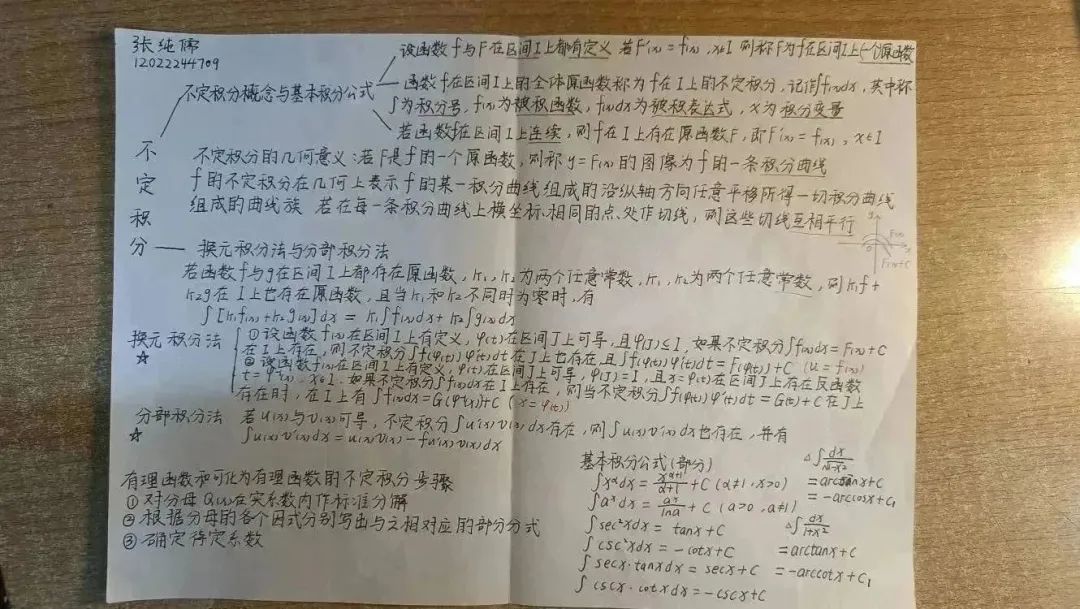 张纯儒
12022244709
不定积分
不定积分概念与基本积分公式
设函数f与F在区间I上都有定义 若F'(x)=f(x),x∈I 则称F为f在区间I上一个原函数
函数f在区间I上的全体原函数称为f在I上的不定积分,记作∫f(x)dx,其中称
∫为积分号,f(x)为被积函数,f(x)dx为被积表达式,x为积分变量
若函数f在区间I上连续,则f在I上存在原函数F,即F'(x)=f(x),x∈I
不定积分的几何意义:若F是f的一个原函数,则称y=F(x)的图像为f的一条积分曲线
f的不定积分在几何上表示f的某一积分曲线组成的沿纵轴方向任意平移所得一切积分曲线
组成的曲线族 若在每一条积分曲线上横坐标相同的点处作切线,则这些切线互相平行
y
F(x)
0
x
F(x)+C
换元积分法与分部积分法
若函数f与g在区间I上都存在原函数,k₁,k₂为两个任意常数,k₁,k₂为两个任意常数,则k₁f+
k₂g在I上也存在原函数,且当k₁和k₂不同时为零时,有
∫[k₁f(x)+k₂g(x)]dx = k₁∫f(x)dx+k₂∫g(x)dx
换元积分法
☆
①设函数f(x)在区间I上有定义,φ(t)在区间J上可导,且φ(J)⊆I.如果不定积分∫f(x)dx=F(x)+C
在I上存在,则不定积分∫f(φ(t))φ'(t)dt在J上也存在,且∫f(φ(t))φ'(t)dt=F(φ(t))+C
②设函数f(x)在区间I上有定义,φ(t)在区间J上可导,φ(J)=I,且x=φ(t)在区间J上存在反函数
t=φ⁻¹(x),x∈I.如果不定积分∫f(x)dx在I上存在,则当不定积分∫f(φ(t))φ'(t)dt=G(t)+C在J上
存在时,在I上有∫f(x)dx=G(φ⁻¹(x))+C (x=φ(t))
分部积分法
☆
若u(x)与v(x)可导,不定积分∫u'(x)v(x)dx存在,则∫u(x)v'(x)dx也存在,并有
∫u(x)v'(x)dx=u(x)v(x)-∫u'(x)v(x)dx
有理函数和可化为有理函数的不定积分步骤
①对分母Q(x)在实系数内作标准分解
②根据分母的各个因式分别写出与之相对应的部分分式
③确定待定系数
基本积分公式(部分)
∫x^α dx = x^(α+1)/(α+1) + C (α≠1,x>0)
∫a^x dx = a^x/lna + C (a>0,a≠1)
∫sec²xdx = tanx+C
∫csc²xdx = -cotx+C
∫secx·tanxdx = secx+C
∫cscx·cotxdx=-cscx+C
△∫dx/√(1-x²)
=-arccosx+C₁
△∫dx/(1+x²)
=arctanx+C
=-arccotx+C₁